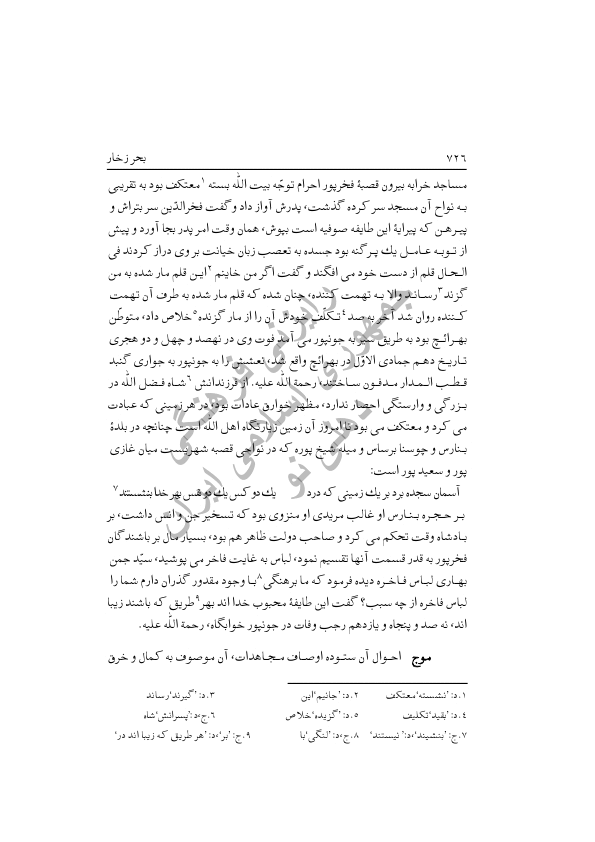 ۷۲۶
بحر زخار
مساجد خرابه بیرون قصبهٔ فخرپور احرام توجّه بیت اللّه بسته ۱معتکف بود به تقریبی
به نواح آن مسجد سر کرده گذشت، پدرش آواز داد و گفت فخرالدّین سر بتراش و
پیرهن که پیرایهٔ این طایفه صوفیه است بپوش، همان وقت امر پدر بجا آورد و پیش
از توبه عامل یك پرگنه بود جسده به تعصب زبان خیانت بر وی دراز کردند فی
الحال قلم از دست خود می افگند و گفت اگر من خاینم ۲این قلم مار شده به من
گزند۳رساند والا به تهمت کننده، چنان شده که قلم مار شده به طرف آن تهمت
کننده روان شد آخر به صد۴تکلّف خودش آن را از مار گزنده۵خلاص داد، متوطّن
بهرائچ بود به طریق سیر به جونپور می آمد فوت وی در نهصد و چهل و دو هجری
تاریخ دهم جمادی الاوّل در بهرائچ واقع شد، نعشش را به جونپور به جواری گنبد
قطب المدار مدفون ساختند، رحمة اللّه علیه. از فرزندانش ۶شاه فضل اللّه در
بزرگی و وارستگی احصار ندارد، مظهر خوارق عادات بود، در هر زمینی که عبادت
می کرد و معتکف می بود تا امروز آن زمین زیارتگاه اهل اللّه است چنانچه در بلدهٔ
بنارس و چوسنا برساس و میله شیخ پوره که در نواحی قصبه شهریست میان غازی
پور و سعید پور است:
آسمان سجده برد بر یك زمینی که درد یك دو کس یك دو نفس بهر خدا بنشستند۷
بر حجره بنارس او غالب مریدی او منزوی بود که تسخیر جن و انس داشت، بر
بادشاه وقت تحکم می کرد و صاحب دولت ظاهر هم بود، بسیار مال بر باشندگان
فخرپور به قدر قسمت آنها تقسیم نمود، لباس به غایت فاخر می پوشید، سیّد جمن
بهاری لباس فاخره دیده فرمود که ما برهنگی۸با وجود مقدور گذران دارم شما را
لباس فاخره از چه سبب؟ گفت این طایفهٔ محبوب خدا اند بهر۹طریق که باشند زیبا
اند، نه صد و پنجاه و یازدهم رجب وفات در جونپور خوابگاه، رحمة اللّه علیه.
موج احوال آن ستوده اوصاف مجاهدات، آن موصوف به کمال و خرق
۱.د: ’نشسته‘معتکف ۲.د: ’جانیم‘این ۳.د: ’گیرند‘رساند
۴.د: ’بقید‘تکلیف ۵.د: ’گزیده‘خلاص ۶.ج،د:’پسرانش‘شاه
۷.ج: ’بنشیند‘،د:’ نیستند‘ ۸.ج،د: ’لنگی‘با ۹.ج: ’بر‘،د: ’هر طریق که زیبا اند در‘
رایزنی فرهنگی
جمهوری اسلامی ایران
دهلی نو